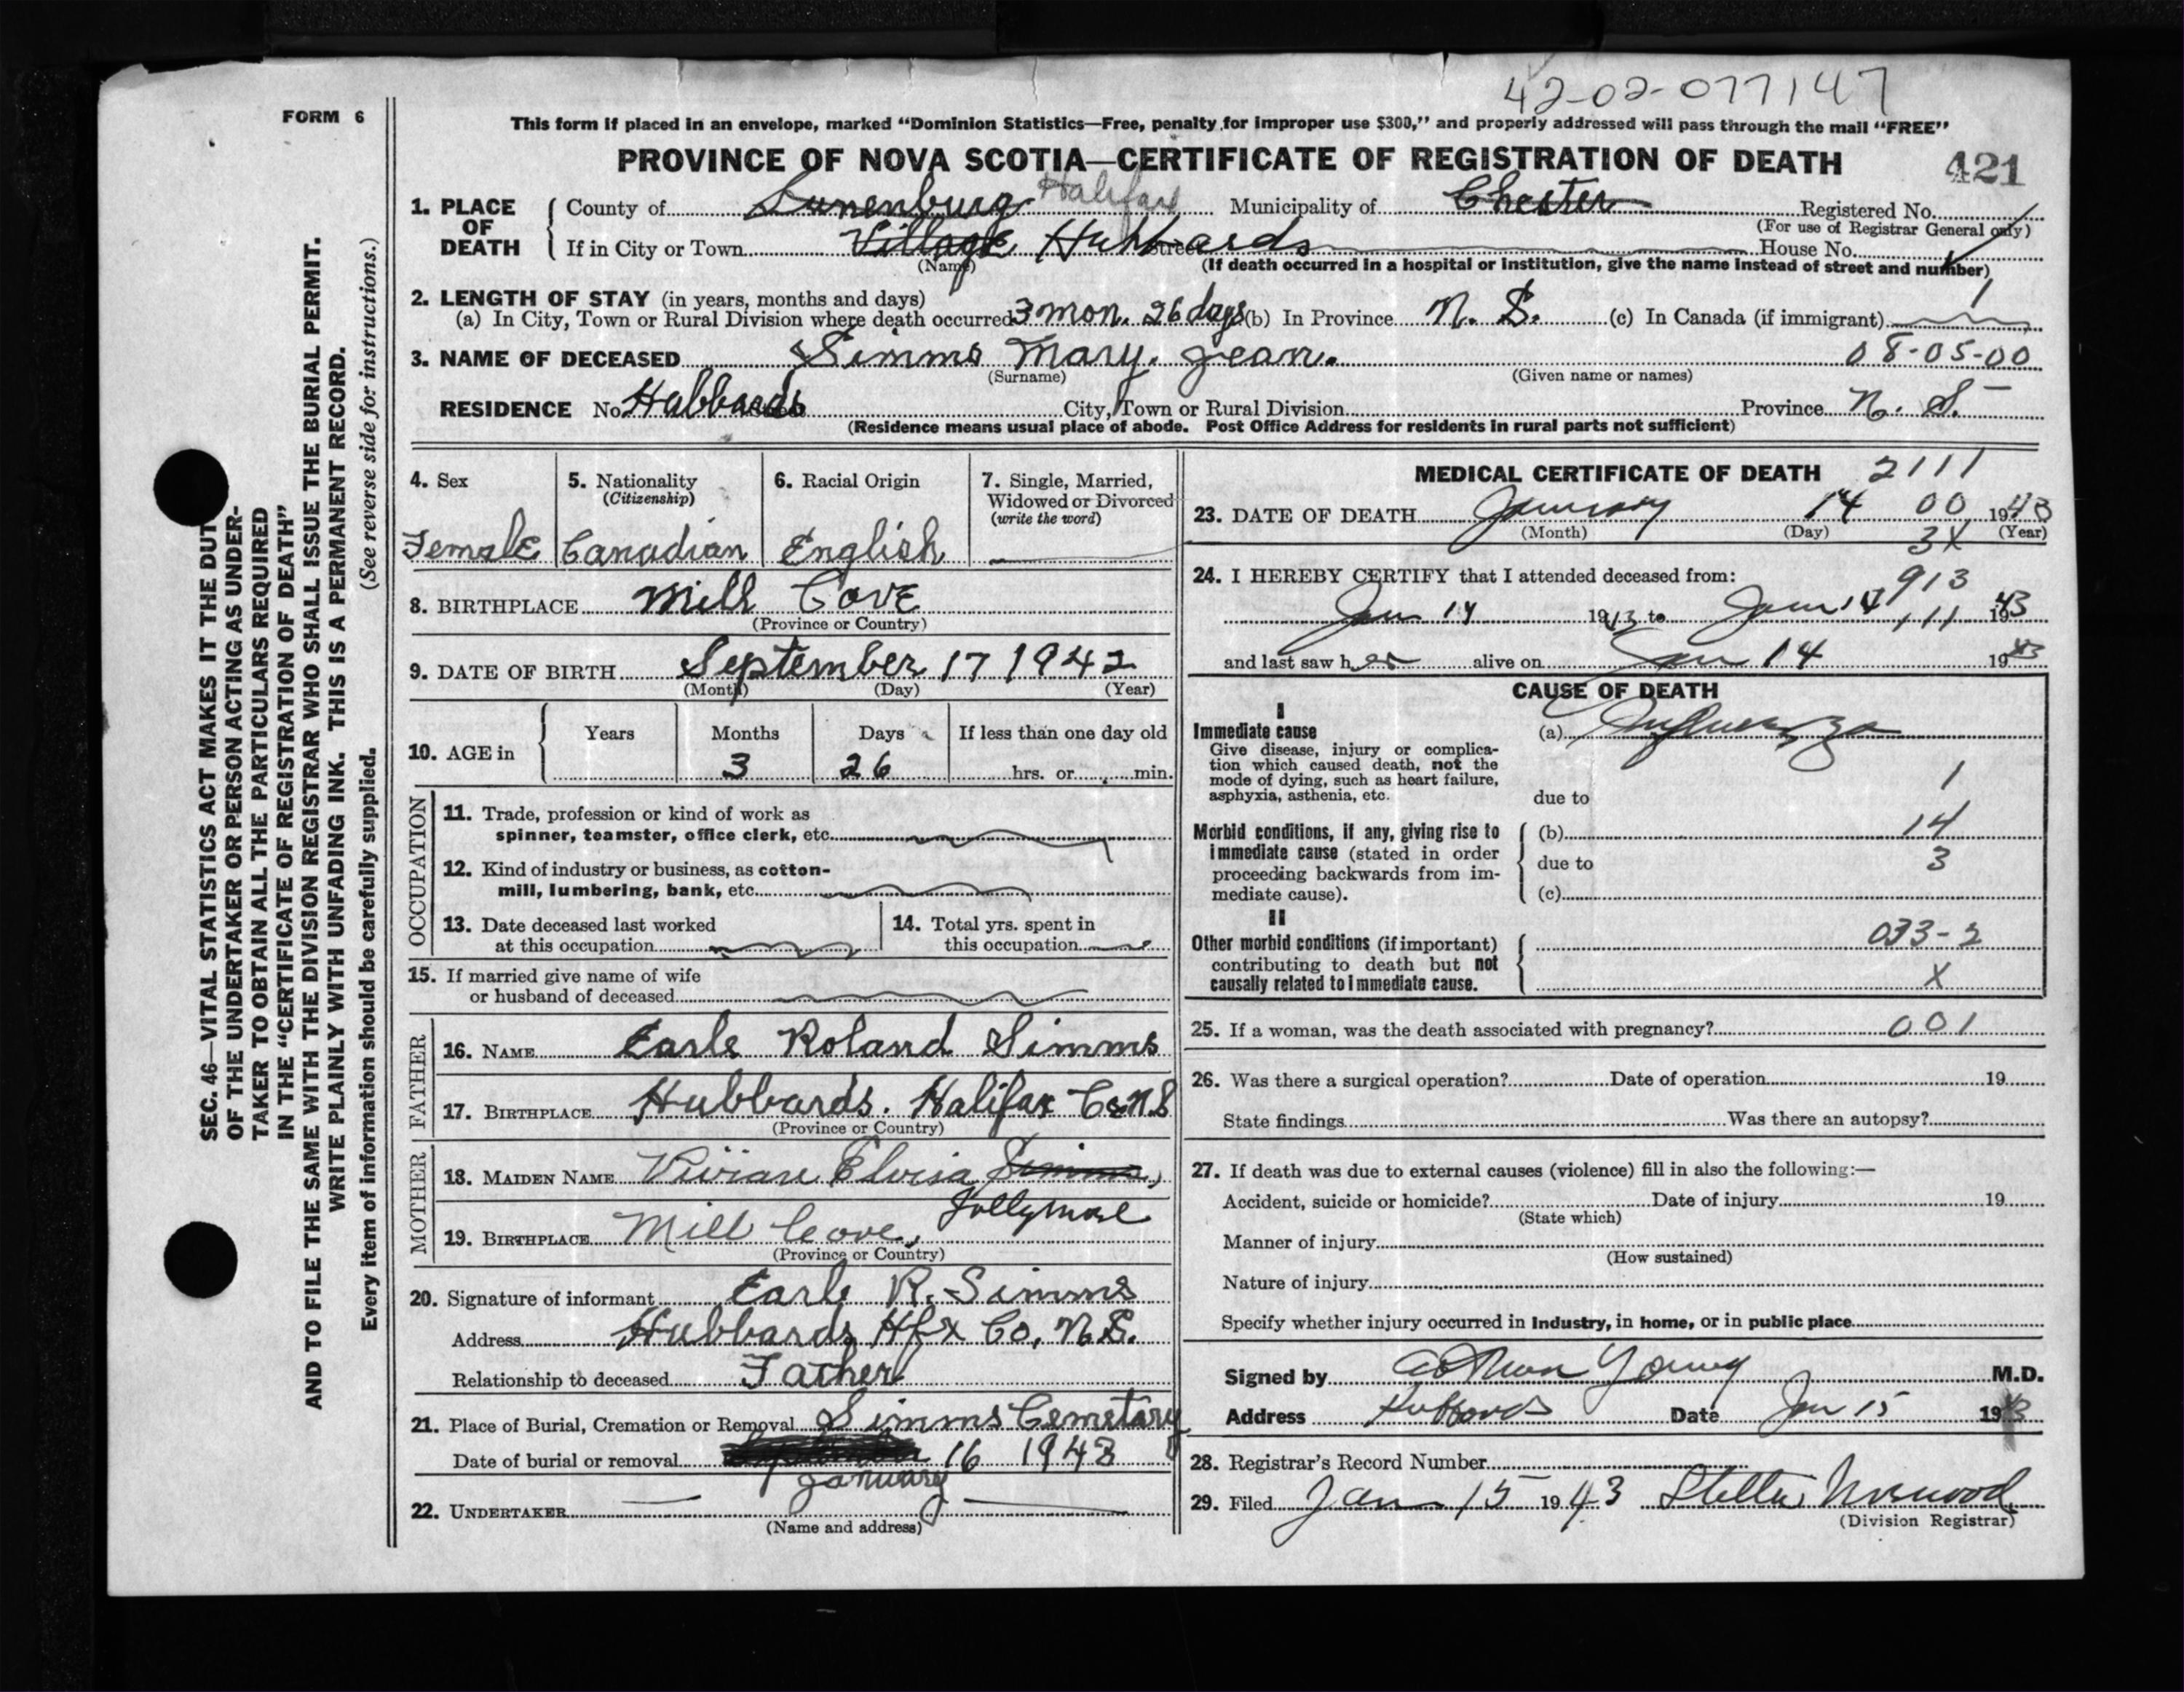 42-02-077147
FORM 6
This form if placed in an envelope, marked "Dominion Statistics—Free, penalty for improper use $300," and properly addressed will pass through the mail "FREE"
PROVINCE OF NOVA SCOTIA—CERTIFICATE OF REGISTRATION OF DEATH 421
1. PLACE OF DEATH
County of Lunenburg Halifax Municipality of Chester Registered No.
(For use of Registrar General only)
If in City or Town Village Hubbards Street House No.
(Name) (If death occurred in a hospital or institution, give the name instead of street and number)
2. LENGTH OF STAY (in years, months and days) 1
(a) In City, Town or Rural Division where death occurred 3 mon. 26 days (b) In Province N. S. (c) In Canada (if immigrant)
3. NAME OF DECEASED Simms Mary. Jean. 08-05-00
(Surname) (Given name or names)
RESIDENCE No. Hubbards City, Town or Rural Division Province N. S.
(Residence means usual place of abode. Post Office Address for residents in rural parts not sufficient)
4. Sex
Female
5. Nationality
(Citizenship)
Canadian
6. Racial Origin
English
7. Single, Married,
Widowed or Divorced
(write the word)
8. BIRTHPLACE Mill Cove
(Province or Country)
9. DATE OF BIRTH September 17 1942
(Month) (Day) (Year)
10. AGE in
Years Months Days If less than one day old
3 26 hrs. or min.
OCCUPATION
11. Trade, profession or kind of work as
spinner, teamster, office clerk, etc.
12. Kind of industry or business, as cotton-
mill, lumbering, bank, etc.
13. Date deceased last worked
at this occupation
14. Total yrs. spent in
this occupation
15. If married give name of wife
or husband of deceased
FATHER
16. NAME Earle Roland Simms
17. BIRTHPLACE Hubbards. Halifax Co N.S
(Province or Country)
MOTHER
18. MAIDEN NAME Vivian Elvria Simms,
Jollymore
19. BIRTHPLACE Mill Cove,
(Province or Country)
20. Signature of informant Earle R. Simms
Address Hubbards Hfx Co, N.S.
Relationship to deceased Father
21. Place of Burial, Cremation or Removal Simms Cemetary
Date of burial or removal 16 1943
January
22. UNDERTAKER
(Name and address)
MEDICAL CERTIFICATE OF DEATH 2111
23. DATE OF DEATH January 14 00 1943
(Month) (Day) 3X (Year)
24. I HEREBY CERTIFY that I attended deceased from: 913
Jan 14 1943 to Jan 14 111 1943
and last saw her alive on Jan 14 1943
CAUSE OF DEATH
I
Immediate cause (a) Influenza
Give disease, injury or complica-
tion which caused death, not the
mode of dying, such as heart failure,
asphyxia, asthenia, etc.
1
due to
Morbid conditions, if any, giving rise to
immediate cause (stated in order
proceeding backwards from im-
mediate cause).
(b) 14
due to 3
(c)
II
Other morbid conditions (if important)
contributing to death but not
causally related to immediate cause.
033-2
X
25. If a woman, was the death associated with pregnancy? 001
26. Was there a surgical operation? Date of operation 19
State findings Was there an autopsy?
27. If death was due to external causes (violence) fill in also the following:—
Accident, suicide or homicide? Date of injury 19
(State which)
Manner of injury
(How sustained)
Nature of injury
Specify whether injury occurred in Industry, in home, or in public place
Signed by Young M.D.
Address Hubbards Date Jan 15 1943
28. Registrar's Record Number
29. Filed Jan 15 1943 Stella Norwood
(Division Registrar)
SEC. 46—VITAL STATISTICS ACT MAKES IT THE DUTY
OF THE UNDERTAKER OR PERSON ACTING AS UNDER-
TAKER TO OBTAIN ALL THE PARTICULARS REQUIRED
IN THE "CERTIFICATE OF REGISTRATION OF DEATH"
AND TO FILE THE SAME WITH THE DIVISION REGISTRAR WHO SHALL ISSUE THE BURIAL PERMIT.
WRITE PLAINLY WITH UNFADING INK. THIS IS A PERMANENT RECORD.
Every item of information should be carefully supplied. (See reverse side for instructions.)